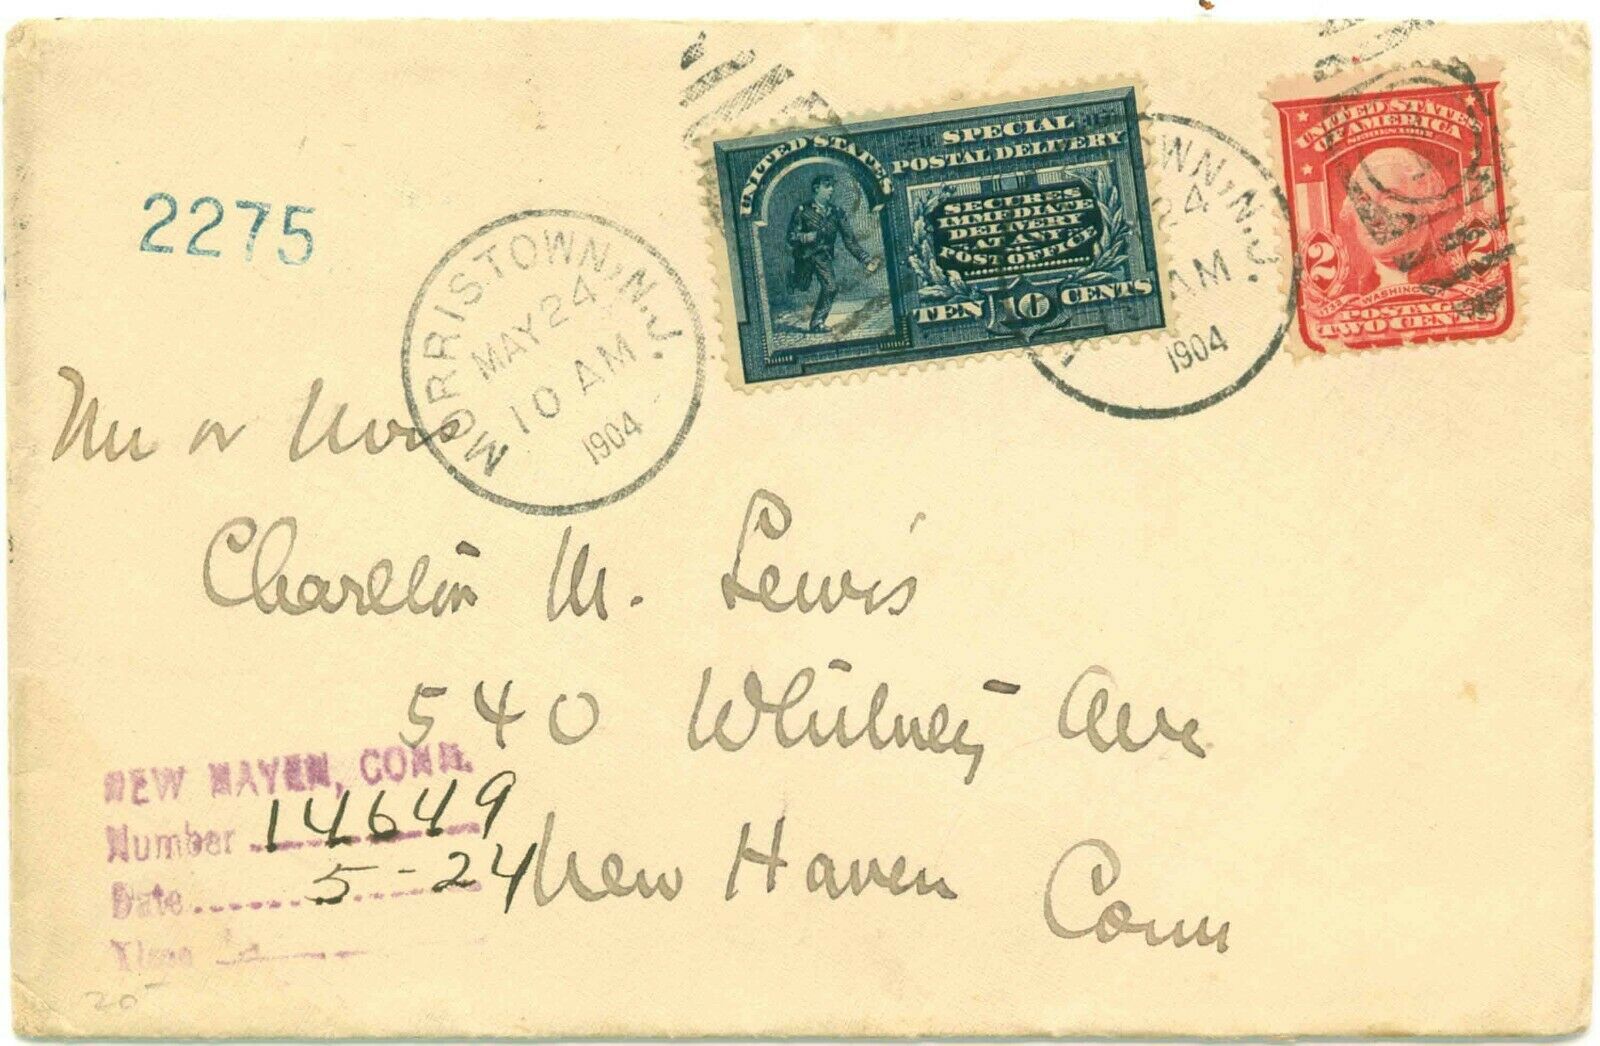 2275
MORRISTOWN, N.J.
MAY 24
10 AM
1904
UNITED STATES
SPECIAL
POSTAL DELIVERY
SECURES
IMMEDIATE
DELIVERY
AT ANY
POST OFFICE
TEN 10 CENTS
TOWN, N.J.
24
AM
1904
UNITED STATES
OF AMERICA
SERIES 1902
2 2
WASHINGTON
POSTAGE
TWO CENTS
Mr or Mrs
Charlton M. Lewis
540 Whitney Ave
New Haven
Conn
NEW HAVEN, CONN.
Number 14649
Date 5-24
Time
20